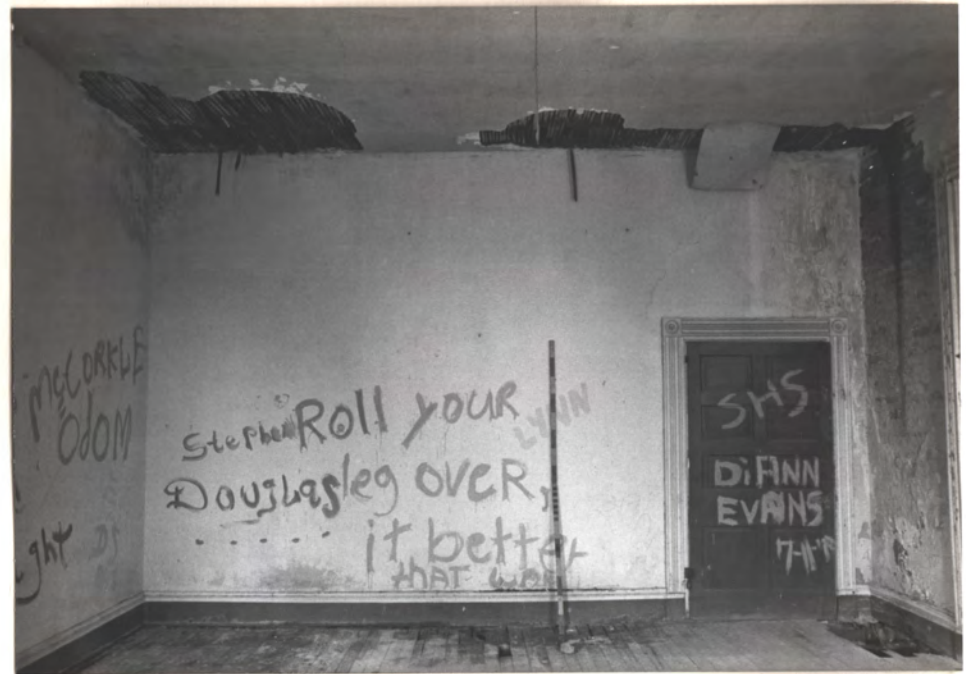 McCORKLE
OdOM
ght DJ
Stephen Roll your
LYNN
Douglas leg over,
it better
tHAT way
SHS
DiANN
EVANS